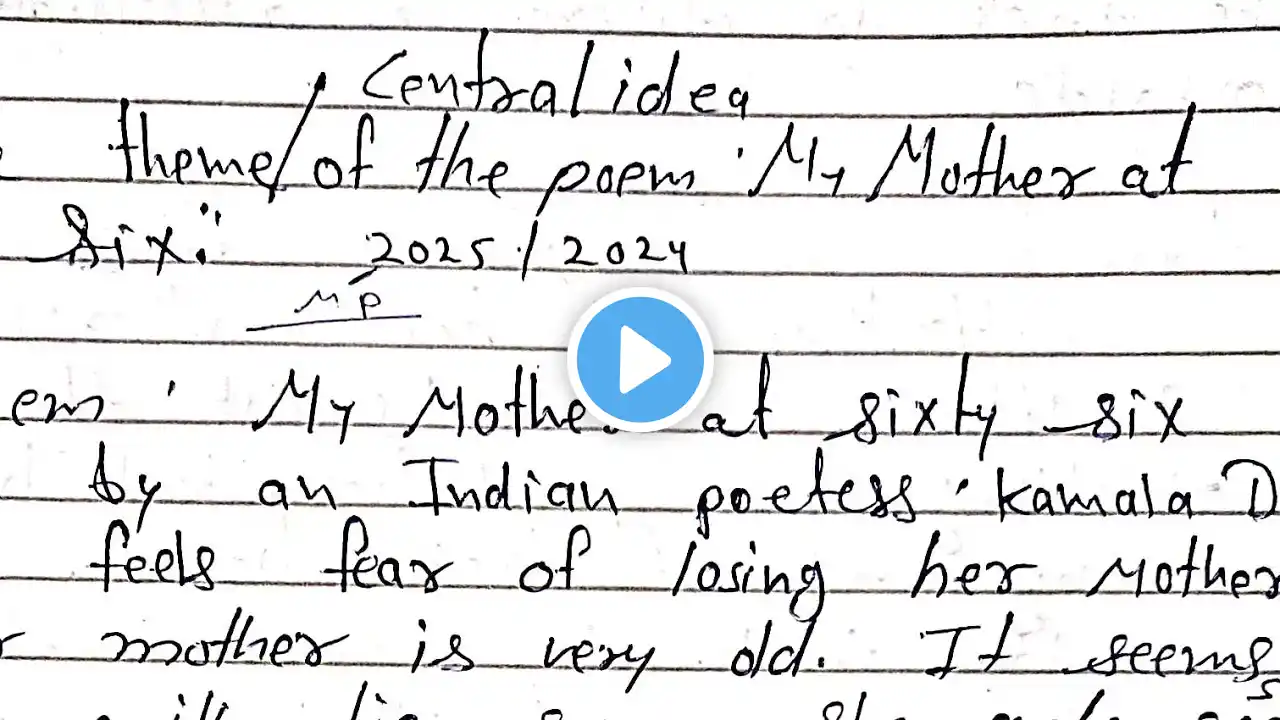 Central idea
theme/of the poem 'My Mother at
six".
2025/2024
MP
em ' My Mother at sixty six
by an Indian poetess. Kamala D
feels fear of losing her Mother
mother is very old. It seems